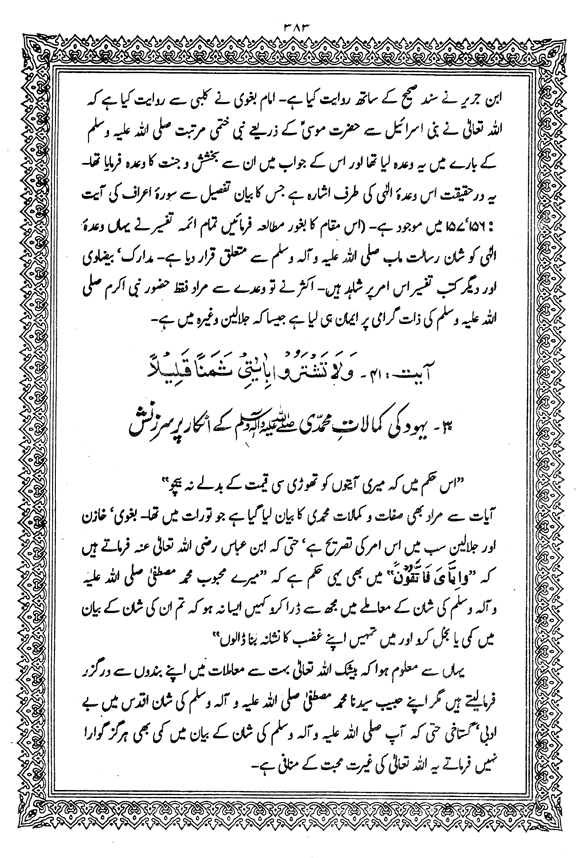 ۳۸۳
ابن جریر نے سند صحیح کے ساتھ روایت کیا ہے۔ امام بغوی نے کلبی سے روایت کیا ہے کہ
اللہ تعالیٰ نے بنی اسرائیل سے حضرت موسیٰؑ کے ذریعے نبی ختمی مرتبت صلی اللہ علیہ وسلم
کے بارے میں یہ وعدہ لیا تھا اور اس کے جواب میں ان سے بخشش و جنت کا وعدہ فرمایا تھا۔
یہ درحقیقت اس وعدۂ الٰہی کی طرف اشارہ ہے جس کا بیان تفصیل سے سورۂ اعراف کی آیت
: ۱۵۶‘ ۱۵۷ میں موجود ہے۔ (اس مقام کا بغور مطالعہ فرمائیں تمام ائمہ تفسیر نے یہاں وعدۂ
الٰہی کو شان رسالت ماب صلی اللہ علیہ و آلہ وسلم سے متعلق قرار دیا ہے۔ مدارک‘ بیضاوی
اور دیگر کتب تفسیر اس امر پر شاہد ہیں۔ اکثر نے تو وعدے سے مراد فقط حضور نبی اکرم صلی
اللہ علیہ وسلم کی ذات گرامی پر ایمان ہی لیا ہے جیسا کہ جلالین وغیرہ میں ہے۔
آیت : ۴۱۔ وَلَا تَشْتَرُوْا بِاٰيٰتِيْ ثَمَنًا قَلِيْلًا
۳۔ یہود کی کمالاتِ محمدی صلی اللہ علیہ وآلہ وسلم کے انکار پر سرزنش
”اس حکم میں کہ میری آیتوں کو تھوڑی سی قیمت کے بدلے نہ بیچو“
آیات سے مراد بھی صفات و کمالات محمدی کا بیان لیا گیا ہے جو تورات میں تھا۔ بغوی‘ خازن
اور جلالین سب میں اس امر کی تصریح ہے‘ حتی کہ ابن عباس رضی اللہ تعالیٰ عنہ فرماتے ہیں
کہ ”وَاِيَّايَ فَاتَّقُوْنَ“ میں بھی یہی حکم ہے کہ ”میرے محبوب محمد مصطفیٰ صلی اللہ علیہ
و آلہ وسلم کی شان کے معاملے میں مجھ سے ڈرا کرو کہیں ایسا نہ ہو کہ تم ان کی شان کے بیان
میں کمی یا بخل کرو اور میں تمہیں اپنے غضب کا نشانہ بنا ڈالوں“
یہاں سے معلوم ہوا کہ بیشک اللہ تعالیٰ بہت سے معاملات میں اپنے بندوں سے درگزر
فرمالیتے ہیں مگر اپنے حبیب سیدنا محمد مصطفیٰ صلی اللہ علیہ و آلہ وسلم کی شان اقدس میں بے
ادبی‘ گستاخی حتی کہ آپ صلی اللہ علیہ و آلہ وسلم کی شان کے بیان میں کمی بھی ہرگز گوارا
نہیں فرماتے یہ اللہ تعالیٰ کی غیرت محبت کے منافی ہے۔